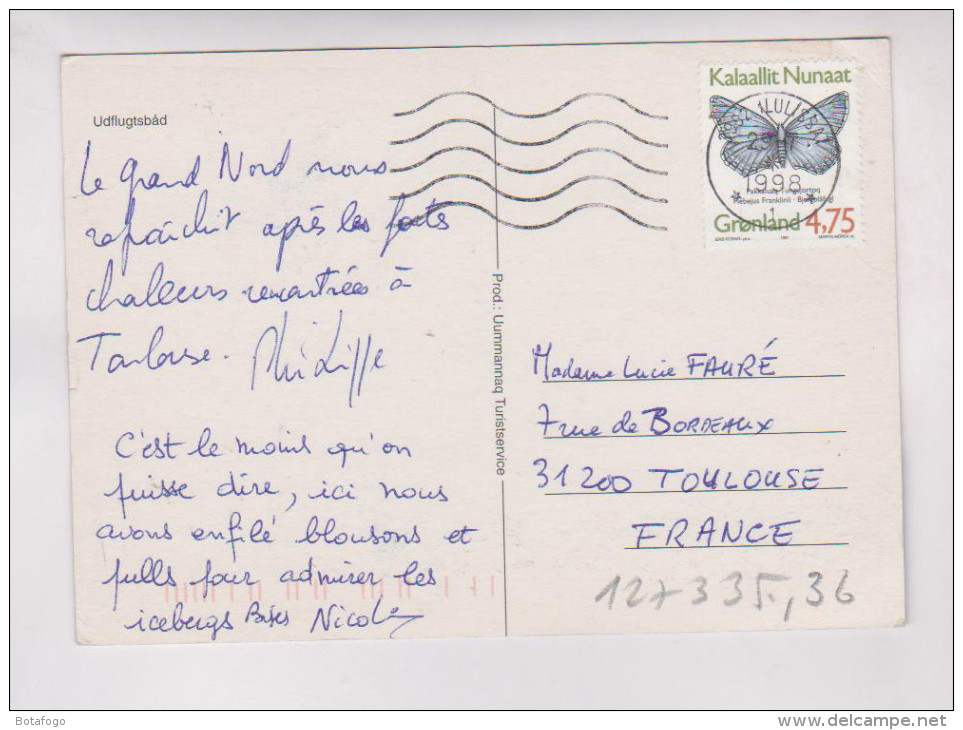 Udflugtsbåd
Le grand Nord nous
rafraîchit après les fortes
chaleurs rencontrées à
Toulouse. Philippe
C'est le moins qu'on
puisse dire, ici nous
avons enfilé blousons et
pulls pour admirer les
icebergs Bises Nicole
Prod.: Uummannaq Turistservice
Kalaallit Nunaat
3952 ILULISSAT
1998
1
Plebejus Franklinii
Grønland 4,75
Madame Lucie FAURÉ
7 rue de BORDEAUX
31200 TOULOUSE
FRANCE
127335,36
Botafogo
http://www.delcampe.net